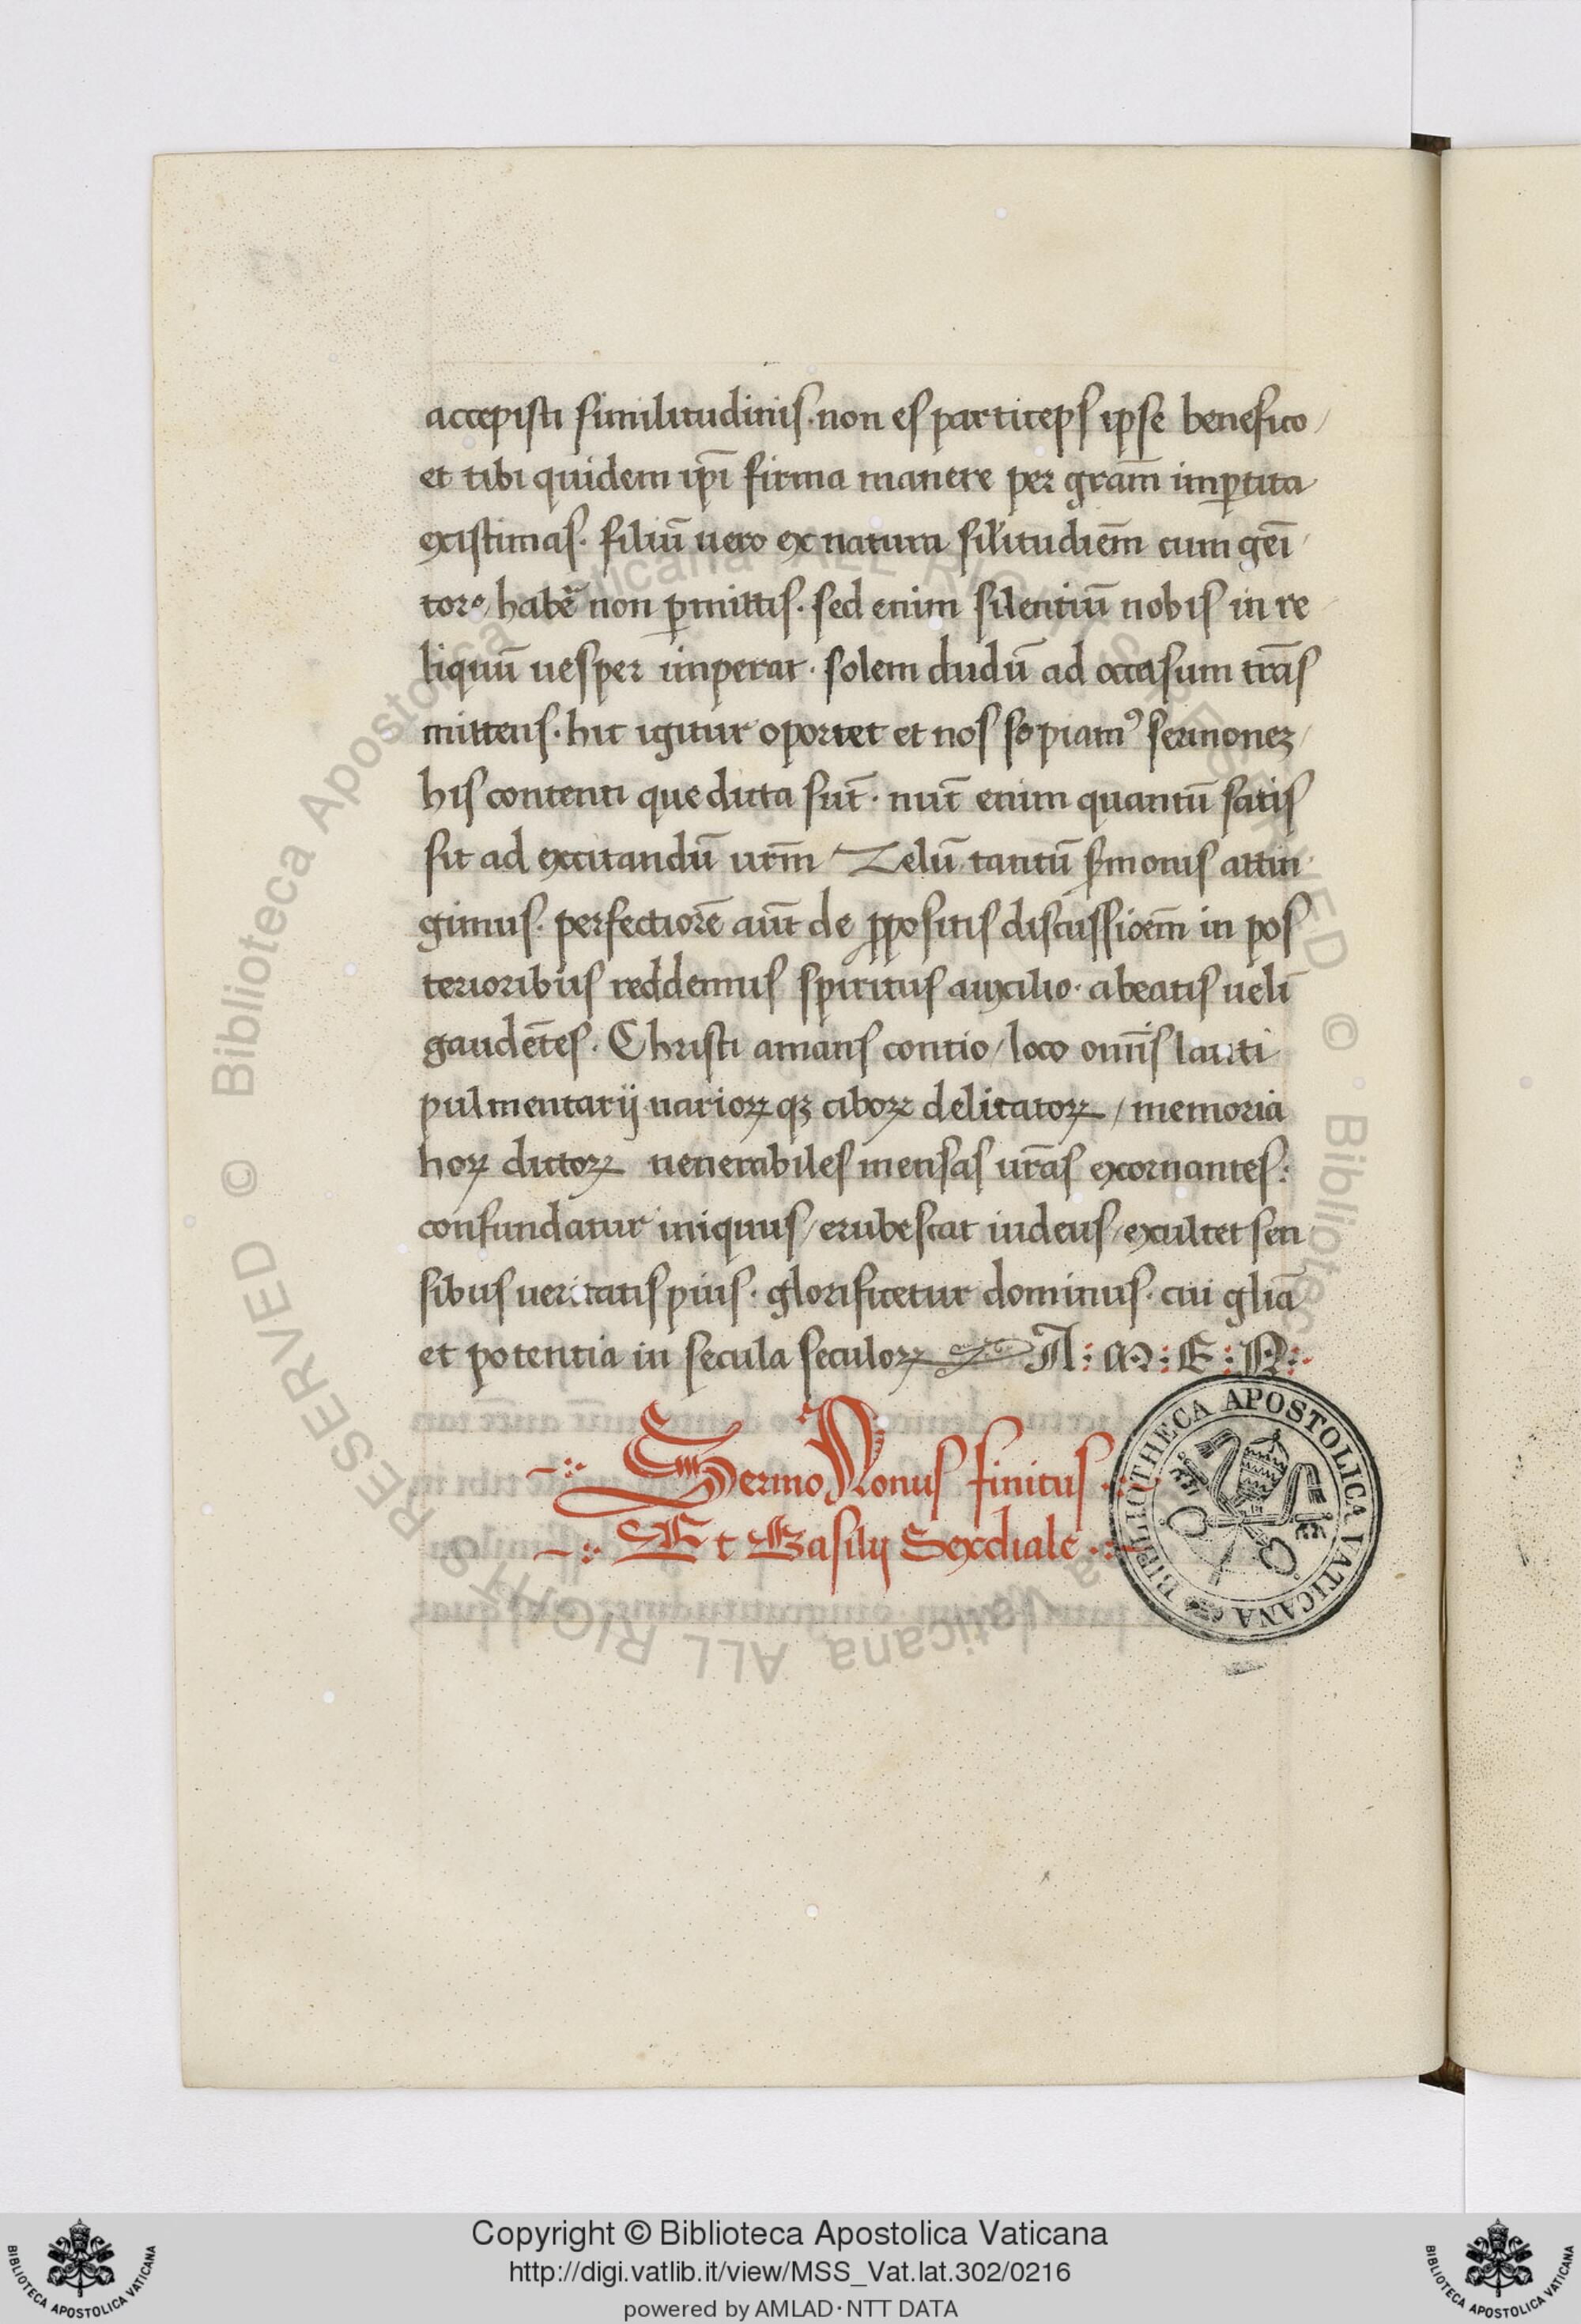 accepisti similitudinis · non es particeps ipse benefico /
et tibi quidem ip̄i firma manere per gram̄ imꝑtita
existimas · filiū uero ex natura sil'itudiem̄ cum gei̅
tore / habē non ꝑmittis · sed enim silentiū nobis in re
liquū uesper imperat · solem dudū ad occasum tra̅s
mittens · hic igitur oportet et nos sopiamꝰ sermonez /
his contenti que dicta sūt · nūc enim quantū satis
sit ad excitandū urm̄ Zelū tantū s̄monis attin
gimus · perfectiorē aut̄ de ꝓpositis discussioem̄ in pos
terioribus reddemus spiritus auxilio · abeatis ueli̅
gaudētes · Christi amans contio / loco omīs lauti
pulmentarij uarioꝝ qꝫ ciboꝝ delicatoꝝ / memoria
hoꝝ dictoꝝ uenerabiles mensas ur̄as exornantes :
confundatur iniquus / erubescat iudeus / exultet sen
sibus ueritatis pius · glorificetur dominus · cui gliā
et potentia in secula seculoꝝ A : M : E : N :
Sermo Nonus finitus
Et Basilij Sexdiale
BIBLIOTHECA APOSTOLICA VATICANA
© Biblioteca Apostolica Vaticana ALL RIGHTS RESERVED © Biblioteca Apostolica Vaticana ALL RIGHTS RESERVED
Copyright © Biblioteca Apostolica Vaticana
http://digi.vatlib.it/view/MSS_Vat.lat.302/0216
powered by AMLAD·NTT DATA
BIBLIOTECA APOSTOLICA VATICANA
BIBLIOTECA APOSTOLICA VATICANA